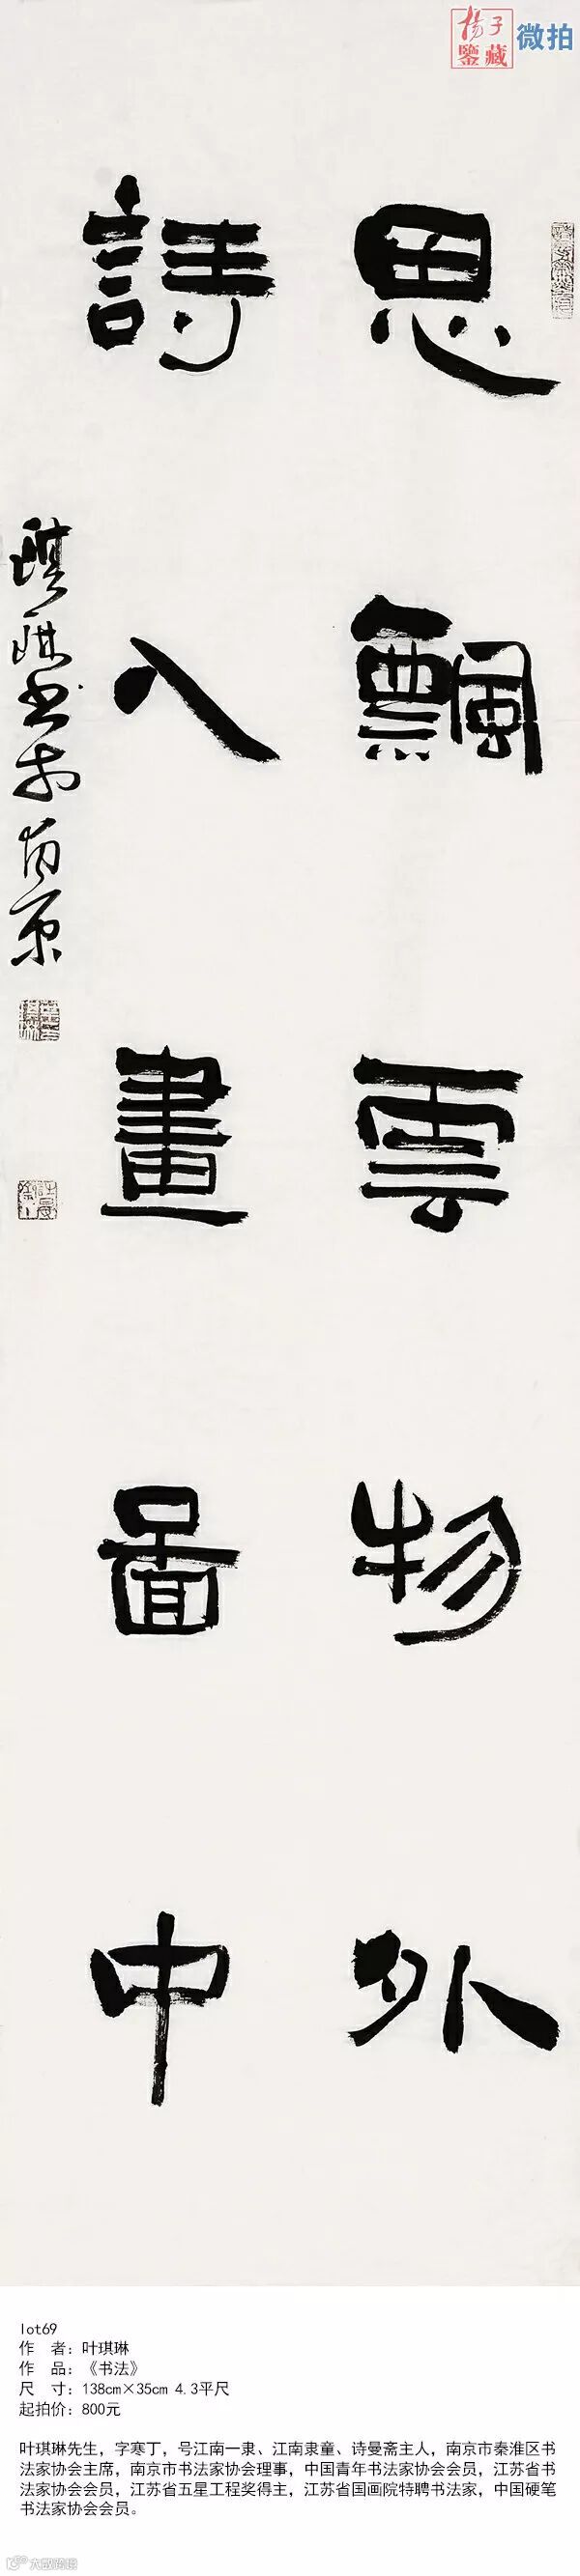 楊子
鑒藏
微拍
思飄雲物外
詩入畫圖中
琪琳書於南京
lot69
作　者：叶琪琳
作　品：《书法》
尺　寸：138cm×35cm 4.3平尺
起拍价：800元
叶琪琳先生，字寒丁，号江南一隶、江南隶童、诗曼斋主人，南京市秦淮区书
法家协会主席，南京市书法家协会理事，中国青年书法家协会会员，江苏省书
法家协会会员，江苏省五星工程奖得主，江苏省国画院特聘书法家，中国硬笔
书法家协会会员。
大数跨境